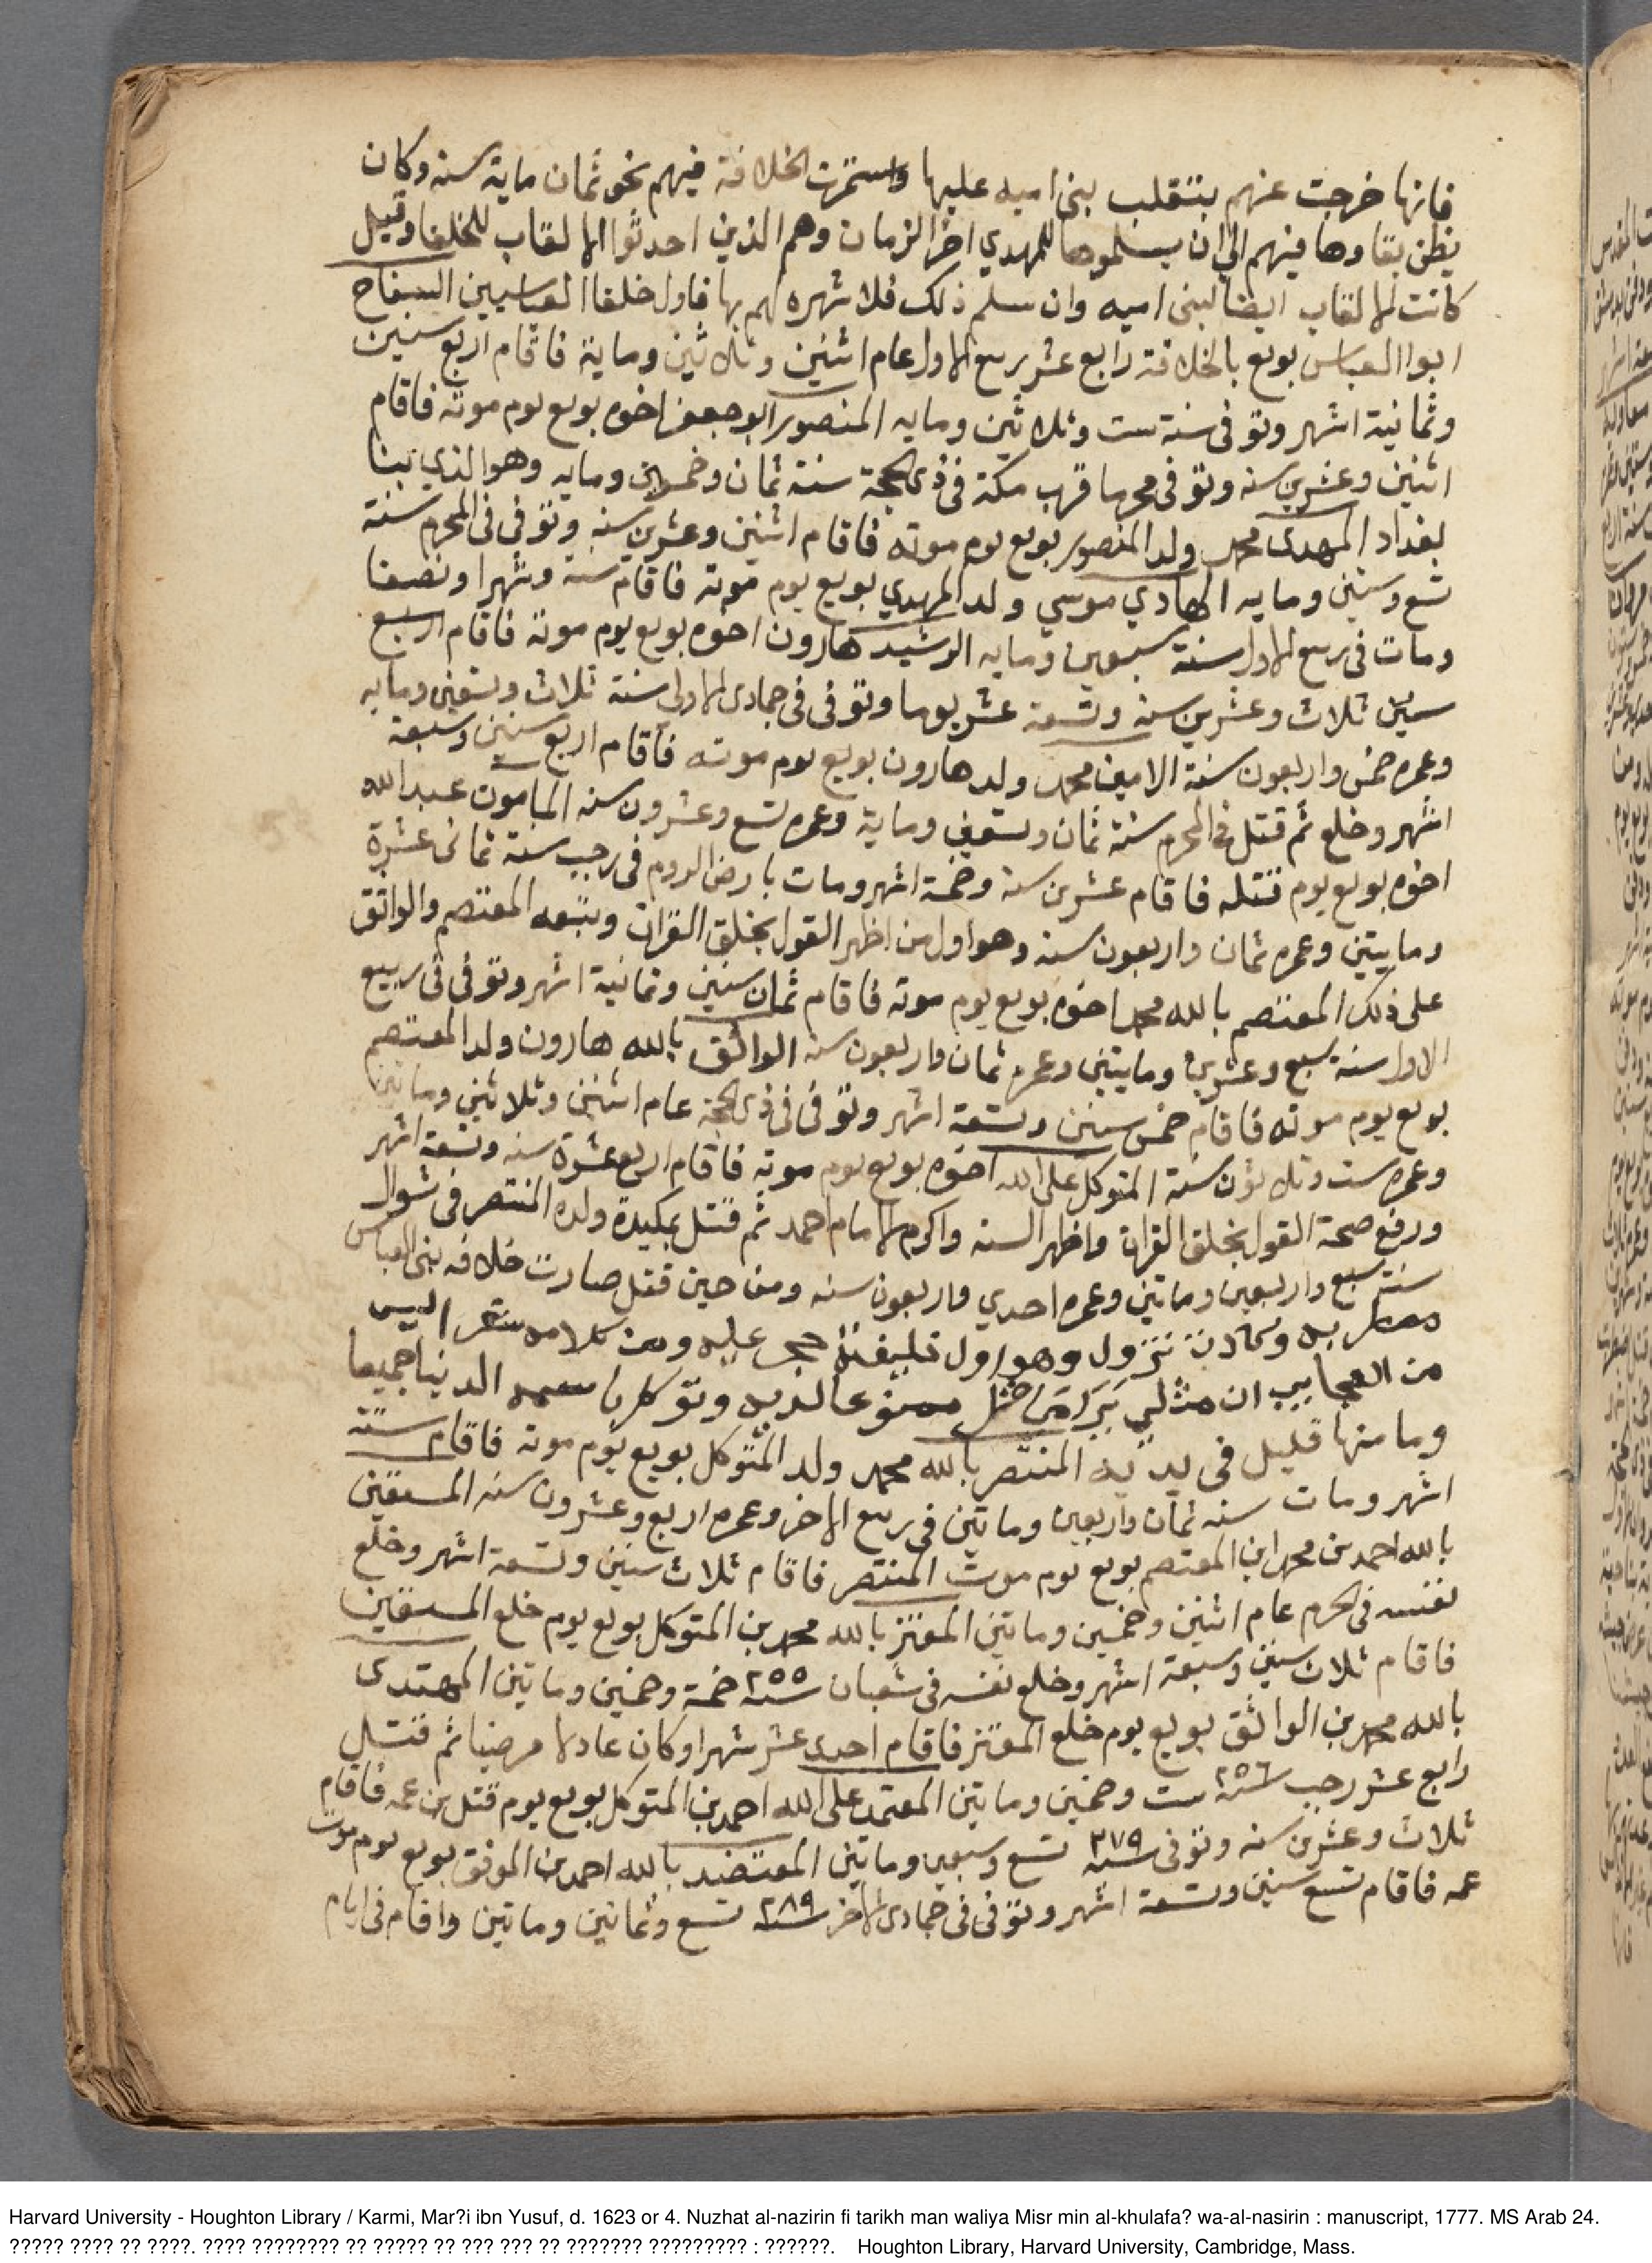 فانها خرجت عنهم بتغلب بنى اميه عليها واستمرت الخلافة فيهم نحو ثمان ماية سنه وكان
يظن بقاوها فيهم الي ان يسلموها للمهدي اخر الزمان وهم الذين احدثوا الالقاب للخلفا وقيل
كانت الالقاب ايضا لبنى اميه وان سلم ذلك فلا شهره لهم بها فاول خلفا العباسيين السفاح
ابوا العباس بويع بالخلافة رابع عشر ربيع الاول عام اثنين وثلاثين وماية فاقام اربع سنين
وثمانية اشهر وتوفى سنة ست وثلاثين ومايه المنصور ابو جعفر اخوه بويع يوم موته فاقام
اثنين وعشرين سنه وتوفى محرما قرب مكة فى ذى الحجة سنة ثمان وخمسين ومايه وهو الذي بنا
بغداد المهدى محمد ولد المنصور بويع يوم موته فاقام اثنين وعشرين سنه وتوفى فى المحرم سنة
تسع وستين ومايه الهادي موسي ولد المهدي بويع يوم موته فاقام سنة وشهرا ونصفا
ومات فى ربيع الاول سنة سبعين ومايه الرشيد هارون اخوه بويع يوم موته فاقام اربع
سنين ثلاث وعشرين سنه وتسعة عشر يوما وتوفى فى جمادى الاولى سنة ثلاث وتسعين ومايه
وعمره خمس واربعون سنة الامين محمد ولد هارون بويع يوم موته فاقام اربع سنين وسبعة
اشهر وخلع ثم قتل فى المحرم سنة ثمان وتسعين وماية وعمره تسع وعشرون سنه المامون عبد الله
اخوه بويع يوم قتله فاقام عشرين سنة وخمسة اشهر ومات بارض الروم فى رجب سنة ثمانى عشرة
ومايتين وعمره ثمان واربعون سنه وهو اول من اظهر القول بخلق القران وتبعه المعتصم والواثق
على ذلك المعتصم بالله محمد اخوه بويع يوم موته فاقام ثمان سنين وثمانية اشهر وتوفى فى ربيع
الاول سنة سبع وعشرين ومايتين وعمره ثمان واربعون سنه الواثق بالله هارون ولد المعتصم
بويع يوم موته فاقام خمس سنين وتسعة اشهر وتوفى فى ذى الحجة عام اثنين وثلاثين ومايتين
وعمره ست وثلاثون سنة المتوكل على الله اخوه بويع يوم موته فاقام اربع عشرة سنه وتسعة اشهر
ورفع صحة القول بخلق القران واظهر السنه واكرم الامام احمد ثم قتل بمكيدة ولده المنتصر فى شوال
سنة سبع واربعين وماتين وعمره احدي واربعون سنه ومن حين قتل صارت خلافه بنى العباس
وكادت تزول وهو اول خليفة حجر عليه ومن كلامه اليس
من العجايب ان مثلي يرا ما قل ممتنعا لديه وتوكل با الدنيا جميعا
وما منها قليل فى يديه المنتصر بالله محمد ولد المتوكل بويع يوم موته فاقام ستة
اشهر ومات سنه ثمان واربعين وماتين فى ربيع الاخر وعمره اربع وعشرون سنه المستعين
بالله احمد بن محمد ابن المعتصم بويع يوم موت المنتصر فاقام ثلاث سنين وتسعة اشهر وخلع
نفسه فى المحرم عام اثنين وخمسين وماتين المعتز بالله محمد بن المتوكل بويع يوم خلع المستعين
فاقام ثلاث سنين وسبعة اشهر وخلع نفسه فى شعبان سنة ٢٥٥ خمسة وخمسين وماتين المهتدى
بالله محمد بن الواثق بويع يوم خلع المعتز فاقام احدى عشر شهرا وكان عادلا مرضيا ثم قتل
رابع عشر رجب سنة ٢٥٦ ست وخمسين وماتين المعتمد على الله احمد بن المتوكل بويع يوم قتل بن عمه فاقام
ثلاث وعشرين سنه وتوفى سنة ٢٧٩ تسع وسبعين وماتين المعتضد بالله احمد بن الموفق بويع يوم موت
عمه فاقام تسع سنين وتسعة اشهر وتوفى فى جمادى الاخر سنة ٢٨٩ تسع وثمانين وماتين واقام فى ايام
Harvard University - Houghton Library / Karmi, Mar?i ibn Yusuf, d. 1623 or 4. Nuzhat al-nazirin fi tarikh man waliya Misr min al-khulafa? wa-al-nasirin : manuscript, 1777. MS Arab 24.
????? ???? ?? ????. ???? ???????? ?? ????? ?? ??? ??? ?? ??????? ????????? : ??????. Houghton Library, Harvard University, Cambridge, Mass.